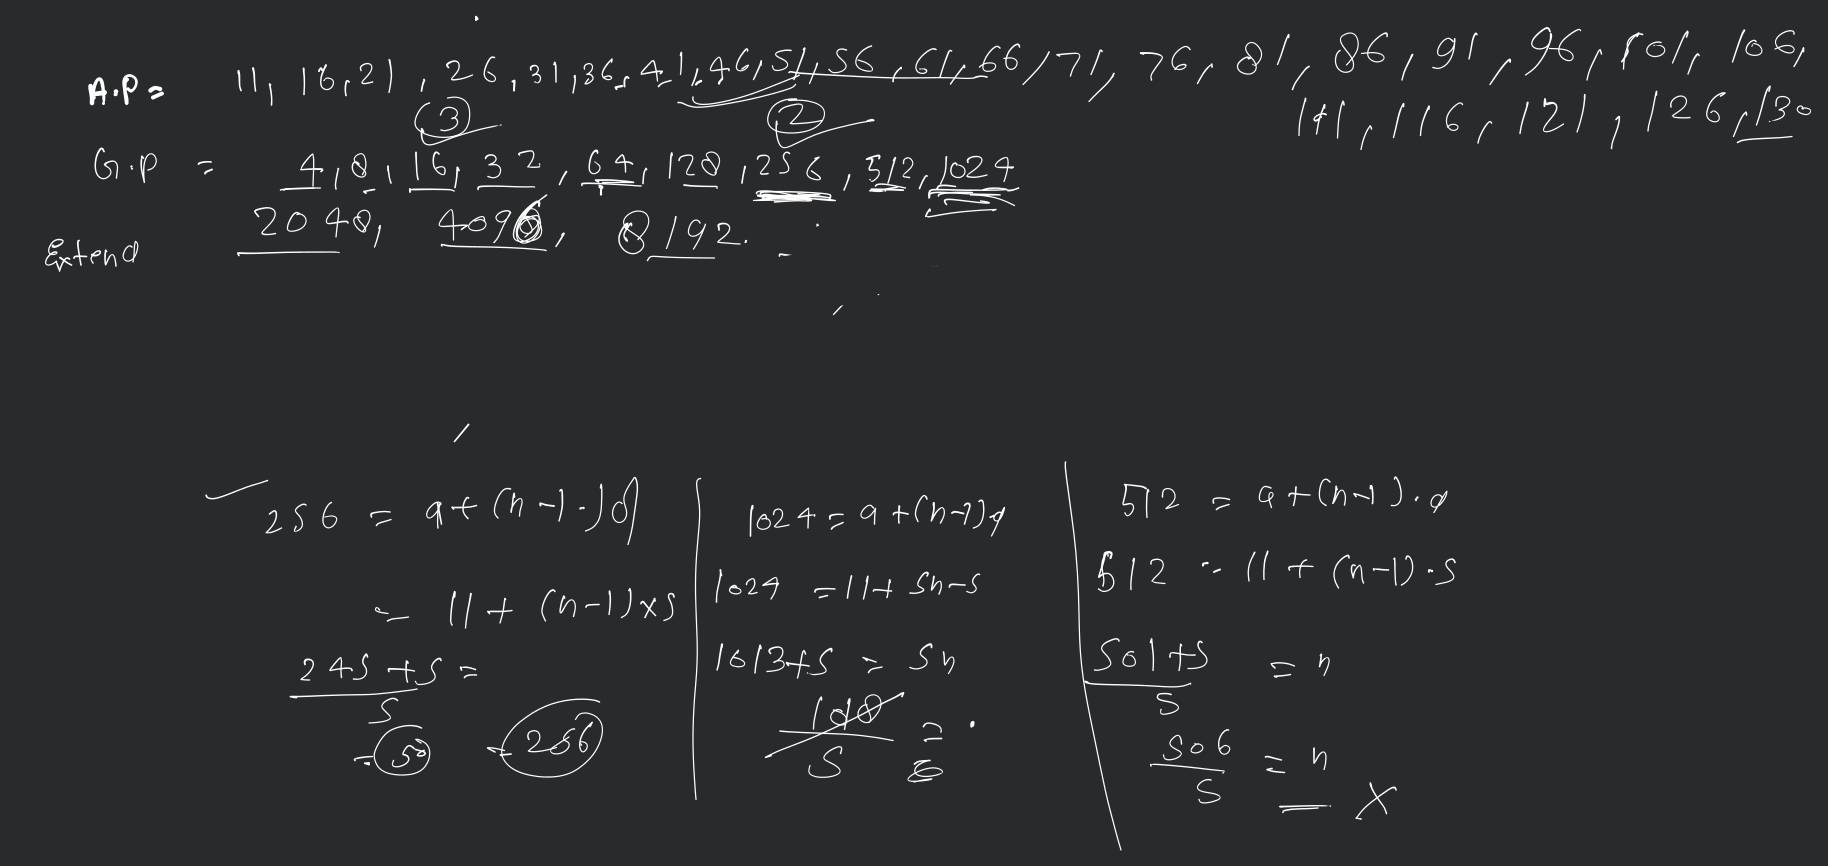 A.P = 11, 16, 21, 26, 31, 36, 41, 46, 51, 56, 61, 66, 71, 76, 81, 86, 91, 96, 101, 106,
111, 116, 121, 126, 130
3 2
G.P = 4, 8, 16, 32, 64, 128, 256, 512, 1024
Extend 2048, 4096, 8192.
256 = a + (n-1).d
= 11 + (n-1)x5
245 + 5 =
5
= 50 = 256
1024 = a + (n-1)d
1024 = 11 + 5n-5
1013+5 = 5n
5 =
512 = a + (n-1).d
512 = 11 + (n-1).5
501+5 = n
5
506 = n
5 X